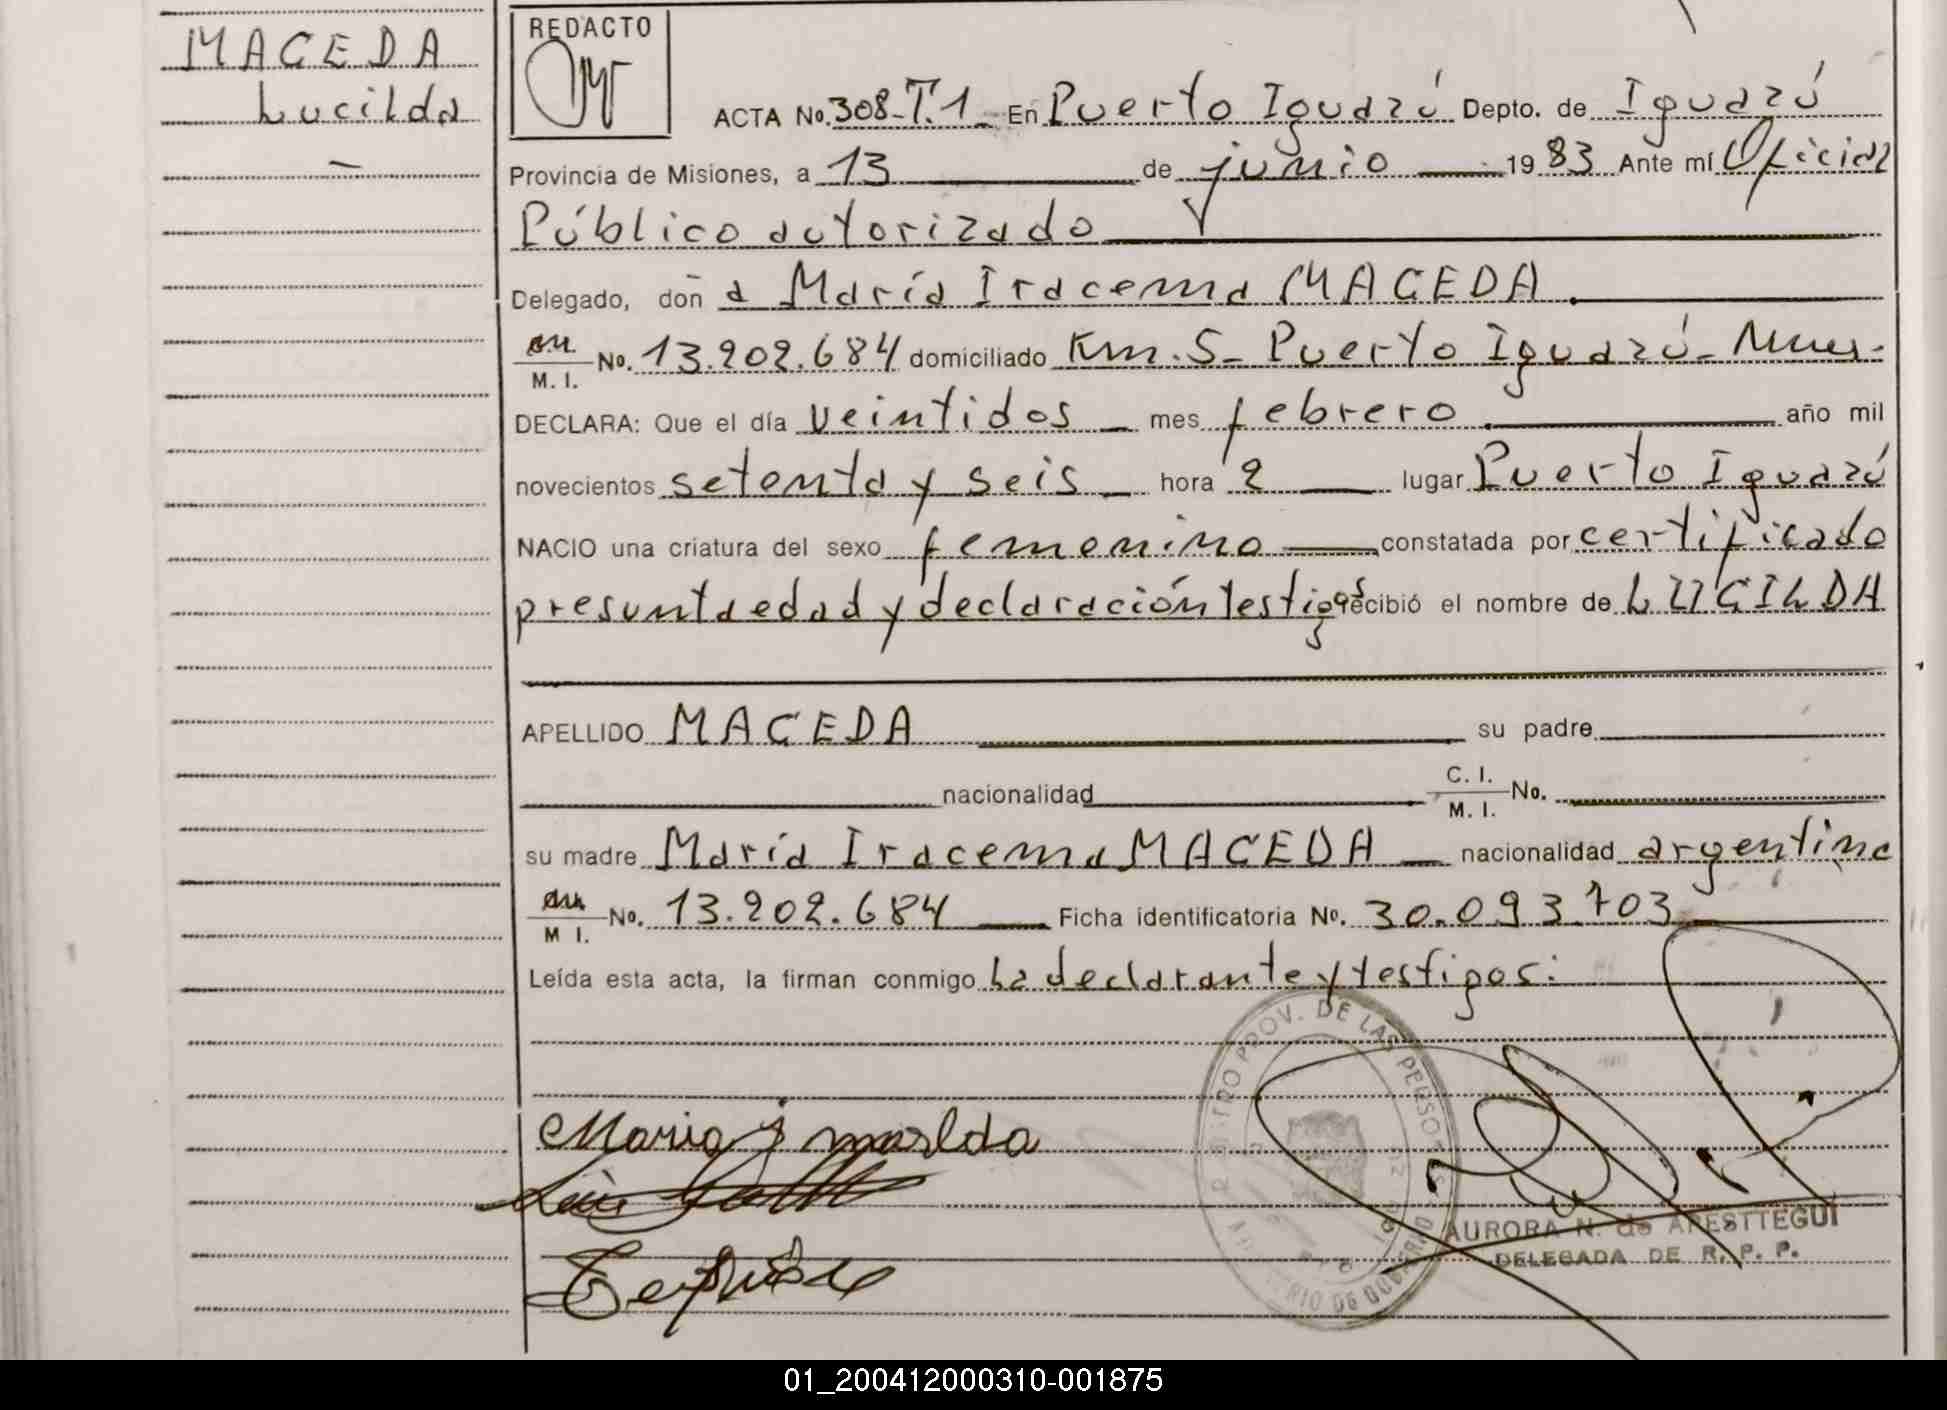 MACEDA
Lucilda
REDACTO
ACTA No. 308-T.1 En Puerto Iguazú Depto. de Iguazú
Provincia de Misiones, a 13 de junio 1983 Ante mí Oficial
Público autorizado
Delegado, doña María Iracema MACEDA
M. I. No. 13.202.684 domiciliado Km. 5- Puerto Iguazú-
DECLARA: Que el día veintidos mes febrero año mil
novecientos setenta y seis hora 2 lugar Puerto Iguazú
NACIO una criatura del sexo femenino constatada por certificado
presunta edad y declaración testigos recibió el nombre de LUCILDA
APELLIDO MACEDA su padre
nacionalidad C. I. M. I. No.
su madre María Iracema MACEDA nacionalidad argentina
M I. No. 13.202.684 Ficha identificatoria No. 30.093.703
Leída esta acta, la firman conmigo la declarante y testigos:
REGISTRO PROV. DE LAS PERSONAS
MINISTERIO DE GOBIERNO
Maria
AURORA N. de ARESTTEGUI
DELEGADA DE R. P. P.
01_200412000310-001875